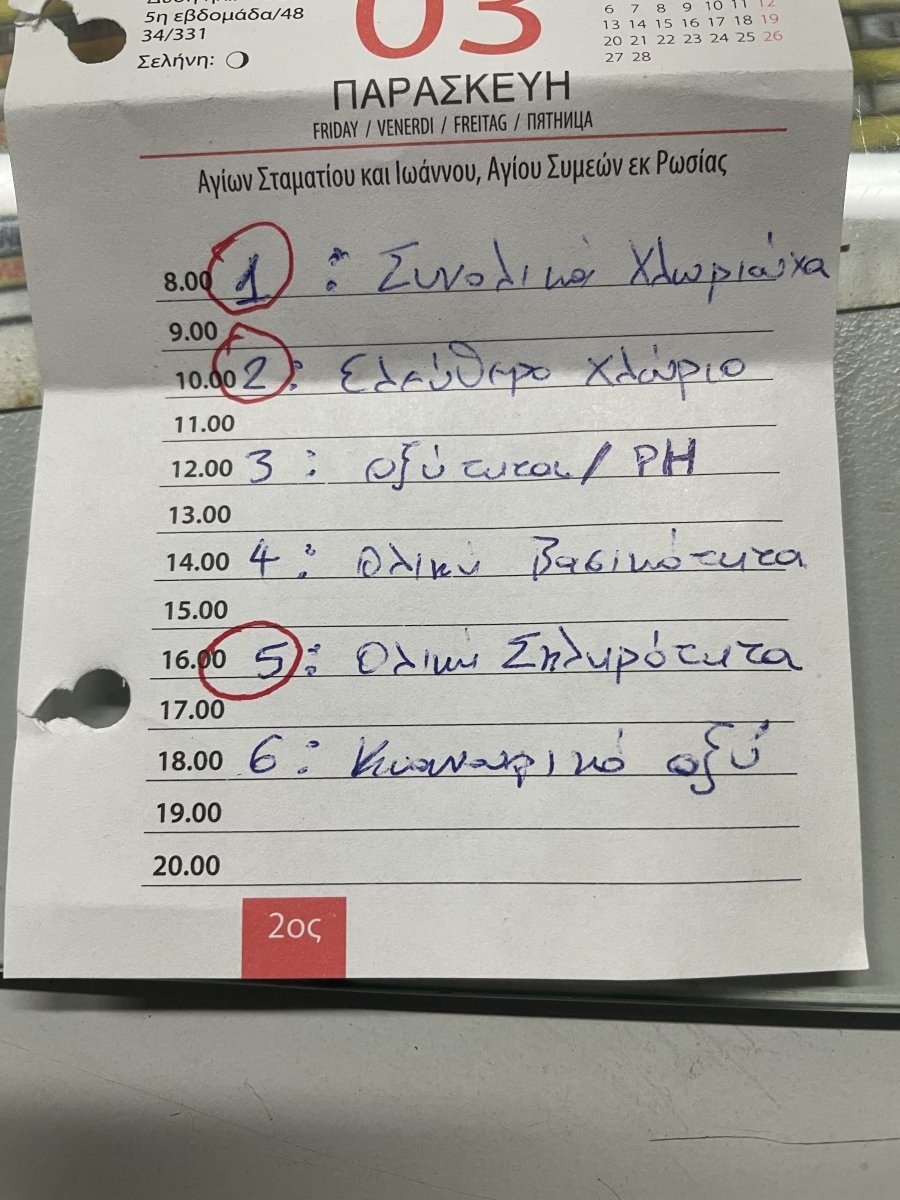 5η εβδομάδα/48
34/331
Σελήνη:
03
6 7 8 9 10 11 12
13 14 15 16 17 18 19
20 21 22 23 24 25 26
27 28
ΠΑΡΑΣΚΕΥΗ
FRIDAY / VENERDI / FREITAG / ПЯТНИЦА
Αγίων Σταματίου και Ιωάννου, Αγίου Συμεών εκ Ρωσίας
8.00 1 : Συνολικά Χλωριούχα
9.00
10.00 2 : Ελεύθερο Χλώριο
11.00
12.00 3 : οξύτητα / PH
13.00
14.00 4 : Ολική Βασικότητα
15.00
16.00 5 : Ολική Σκληρότητα
17.00
18.00 6 : Κυανουρικό οξύ
19.00
20.00
2ος